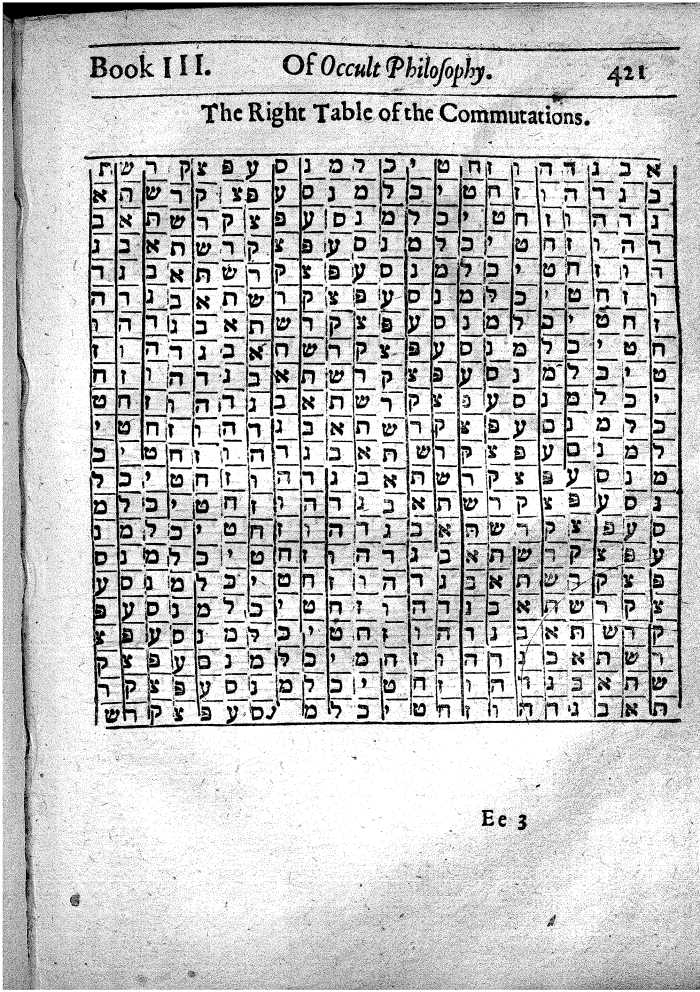 Book III. Of Occult Philosophy. 421
The Right Table of the Commutations.
א ב ג ד ה ו ז ח ט י כ ל מ נ ס ע פ צ ק ר ש ת
ב ג ד ה ו ז ח ט י כ ל מ נ ס ע פ צ ק ר ש ת א
ג ד ה ו ז ח ט י כ ל מ נ ס ע פ צ ק ר ש ת א ב
ד ה ו ז ח ט י כ ל מ נ ס ע פ צ ק ר ש ת א ב ג
ה ו ז ח ט י כ ל מ נ ס ע פ צ ק ר ש ת א ב ג ד
ו ז ח ט י כ ל מ נ ס ע פ צ ק ר ש ת א ב ג ד ה
ז ח ט י כ ל מ נ ס ע פ צ ק ר ש ת א ב ג ד ה ו
ח ט י כ ל מ נ ס ע פ צ ק ר ש ת א ב ג ד ה ו ז
ט י כ ל מ נ ס ע פ צ ק ר ש ת א ב ג ד ה ו ז ח
י כ ל מ נ ס ע פ צ ק ר ש ת א ב ג ד ה ו ז ח ט
כ ל מ נ ס ע פ צ ק ר ש ת א ב ג ד ה ו ז ח ט י
ל מ נ ס ע פ צ ק ר ש ת א ב ג ד ה ו ז ח ט י כ
מ נ ס ע פ צ ק ר ש ת א ב ג ד ה ו ז ח ט י כ ל
נ ס ע פ צ ק ר ש ת א ב ג ד ה ו ז ח ט י כ ל מ
ס ע פ צ ק ר ש ת א ב ג ד ה ו ז ח ט י כ ל מ נ
ע פ צ ק ר ש ת א ב ג ד ה ו ז ח ט י כ ל מ נ ס
פ צ ק ר ש ת א ב ג ד ה ו ז ח ט י כ ל מ נ ס ע
צ ק ר ש ת א ב ג ד ה ו ז ח ט י כ ל מ נ ס ע פ
ק ר ש ת א ב ג ד ה ו ז ח ט י כ ל מ נ ס ע פ צ
ר ש ת א ב ג ד ה ו ז ח מ י כ ל מ נ ס ע פ צ ק
ש ת א ב ג ד ה ו ז ח ט י כ ל מ נ ס ע פ צ ק ר
ת א ב ג ד ה ו ז ח ט י כ ל מ נ ס ע פ צ ק ר ש
Ee 3